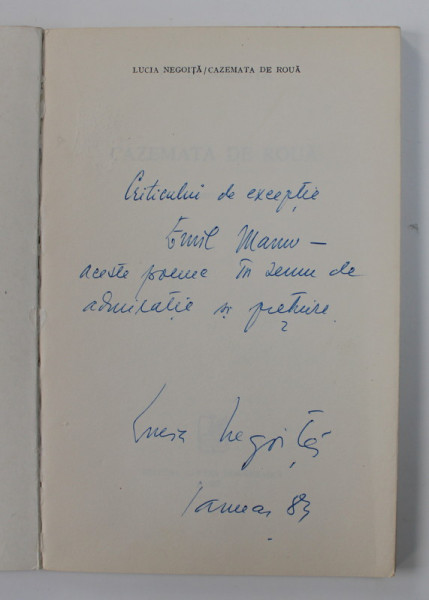 LUCIA NEGOIȚĂ/CAZEMATA DE ROUĂ
CAZEMATA DE ROUĂ
Criticului de excepție
Emil Manu —
aceste poeme în semn de
admirație și prețuire
Lucia Negoiță
Ianuar 83